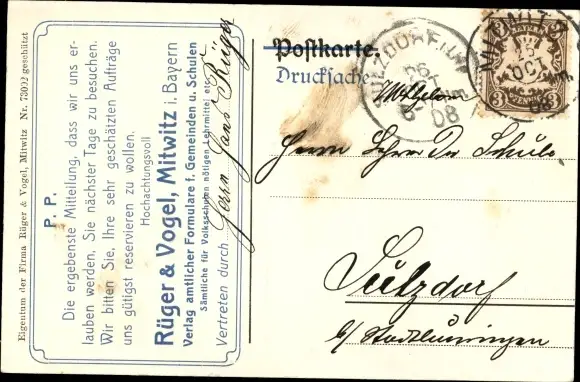 Eigentum der Firma Rüger & Vogel, Mitwitz Nr. 73092 geschützt
P. P.
Die ergebenste Mitteilung, dass wir uns er-
lauben werden, Sie nächster Tage zu besuchen.
Wir bitten Sie, Ihre sehr geschätzten Aufträge
uns gütigst reservieren zu wollen.
Hochachtungsvoll
Rüger & Vogel, Mitwitz i. Bayern
Verlag amtlicher Formulare f. Gemeinden u. Schulen
Sämtliche für Volksschulen nötigen Lehrmittel etc.
Vertreten durch Herrn Hans Rüger
Postkarte
Drucksache
SULZDORF
OKT
08
MITWITZ
5
OCT
BAYERN
3 PFENNIG 3
Herrn
Sulzdorf
b/ Stadtlauringen